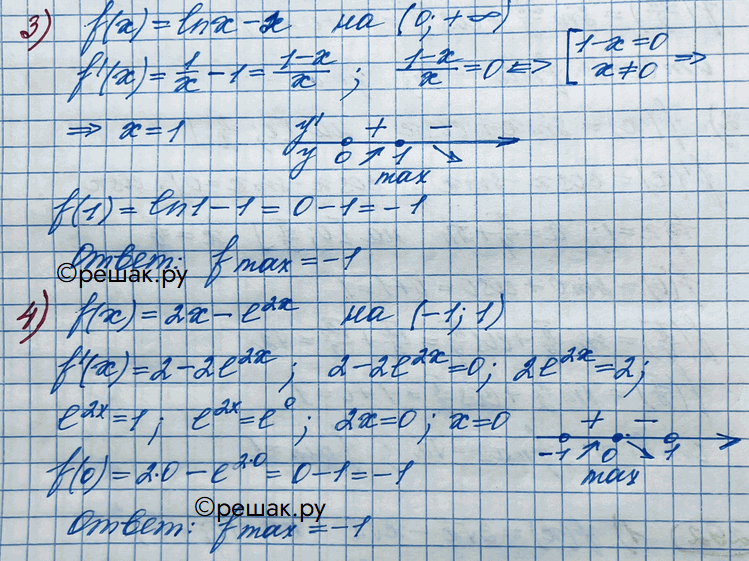 3) f(x) = ln x - x на (0; +∞)
f'(x) = 1/x - 1 = (1-x)/x ; (1-x)/x = 0 <=> [1-x=0 x≠0 =>
=> x = 1 y' + - y 0 ↗ 1 ↘ max
f(1) = ln1 - 1 = 0 - 1 = -1
Ответ: f max = -1
©решак.ру
4) f(x) = 2x - e^2x на (-1; 1)
f'(x) = 2 - 2e^2x ; 2 - 2e^2x = 0; 2e^2x = 2;
e^2x = 1; e^2x = e^0 ; 2x = 0; x = 0 + - -1 ↗ 0 ↘ 1 max
f(0) = 2·0 - e^2·0 = 0 - 1 = -1
©решак.ру
Ответ: f max = -1